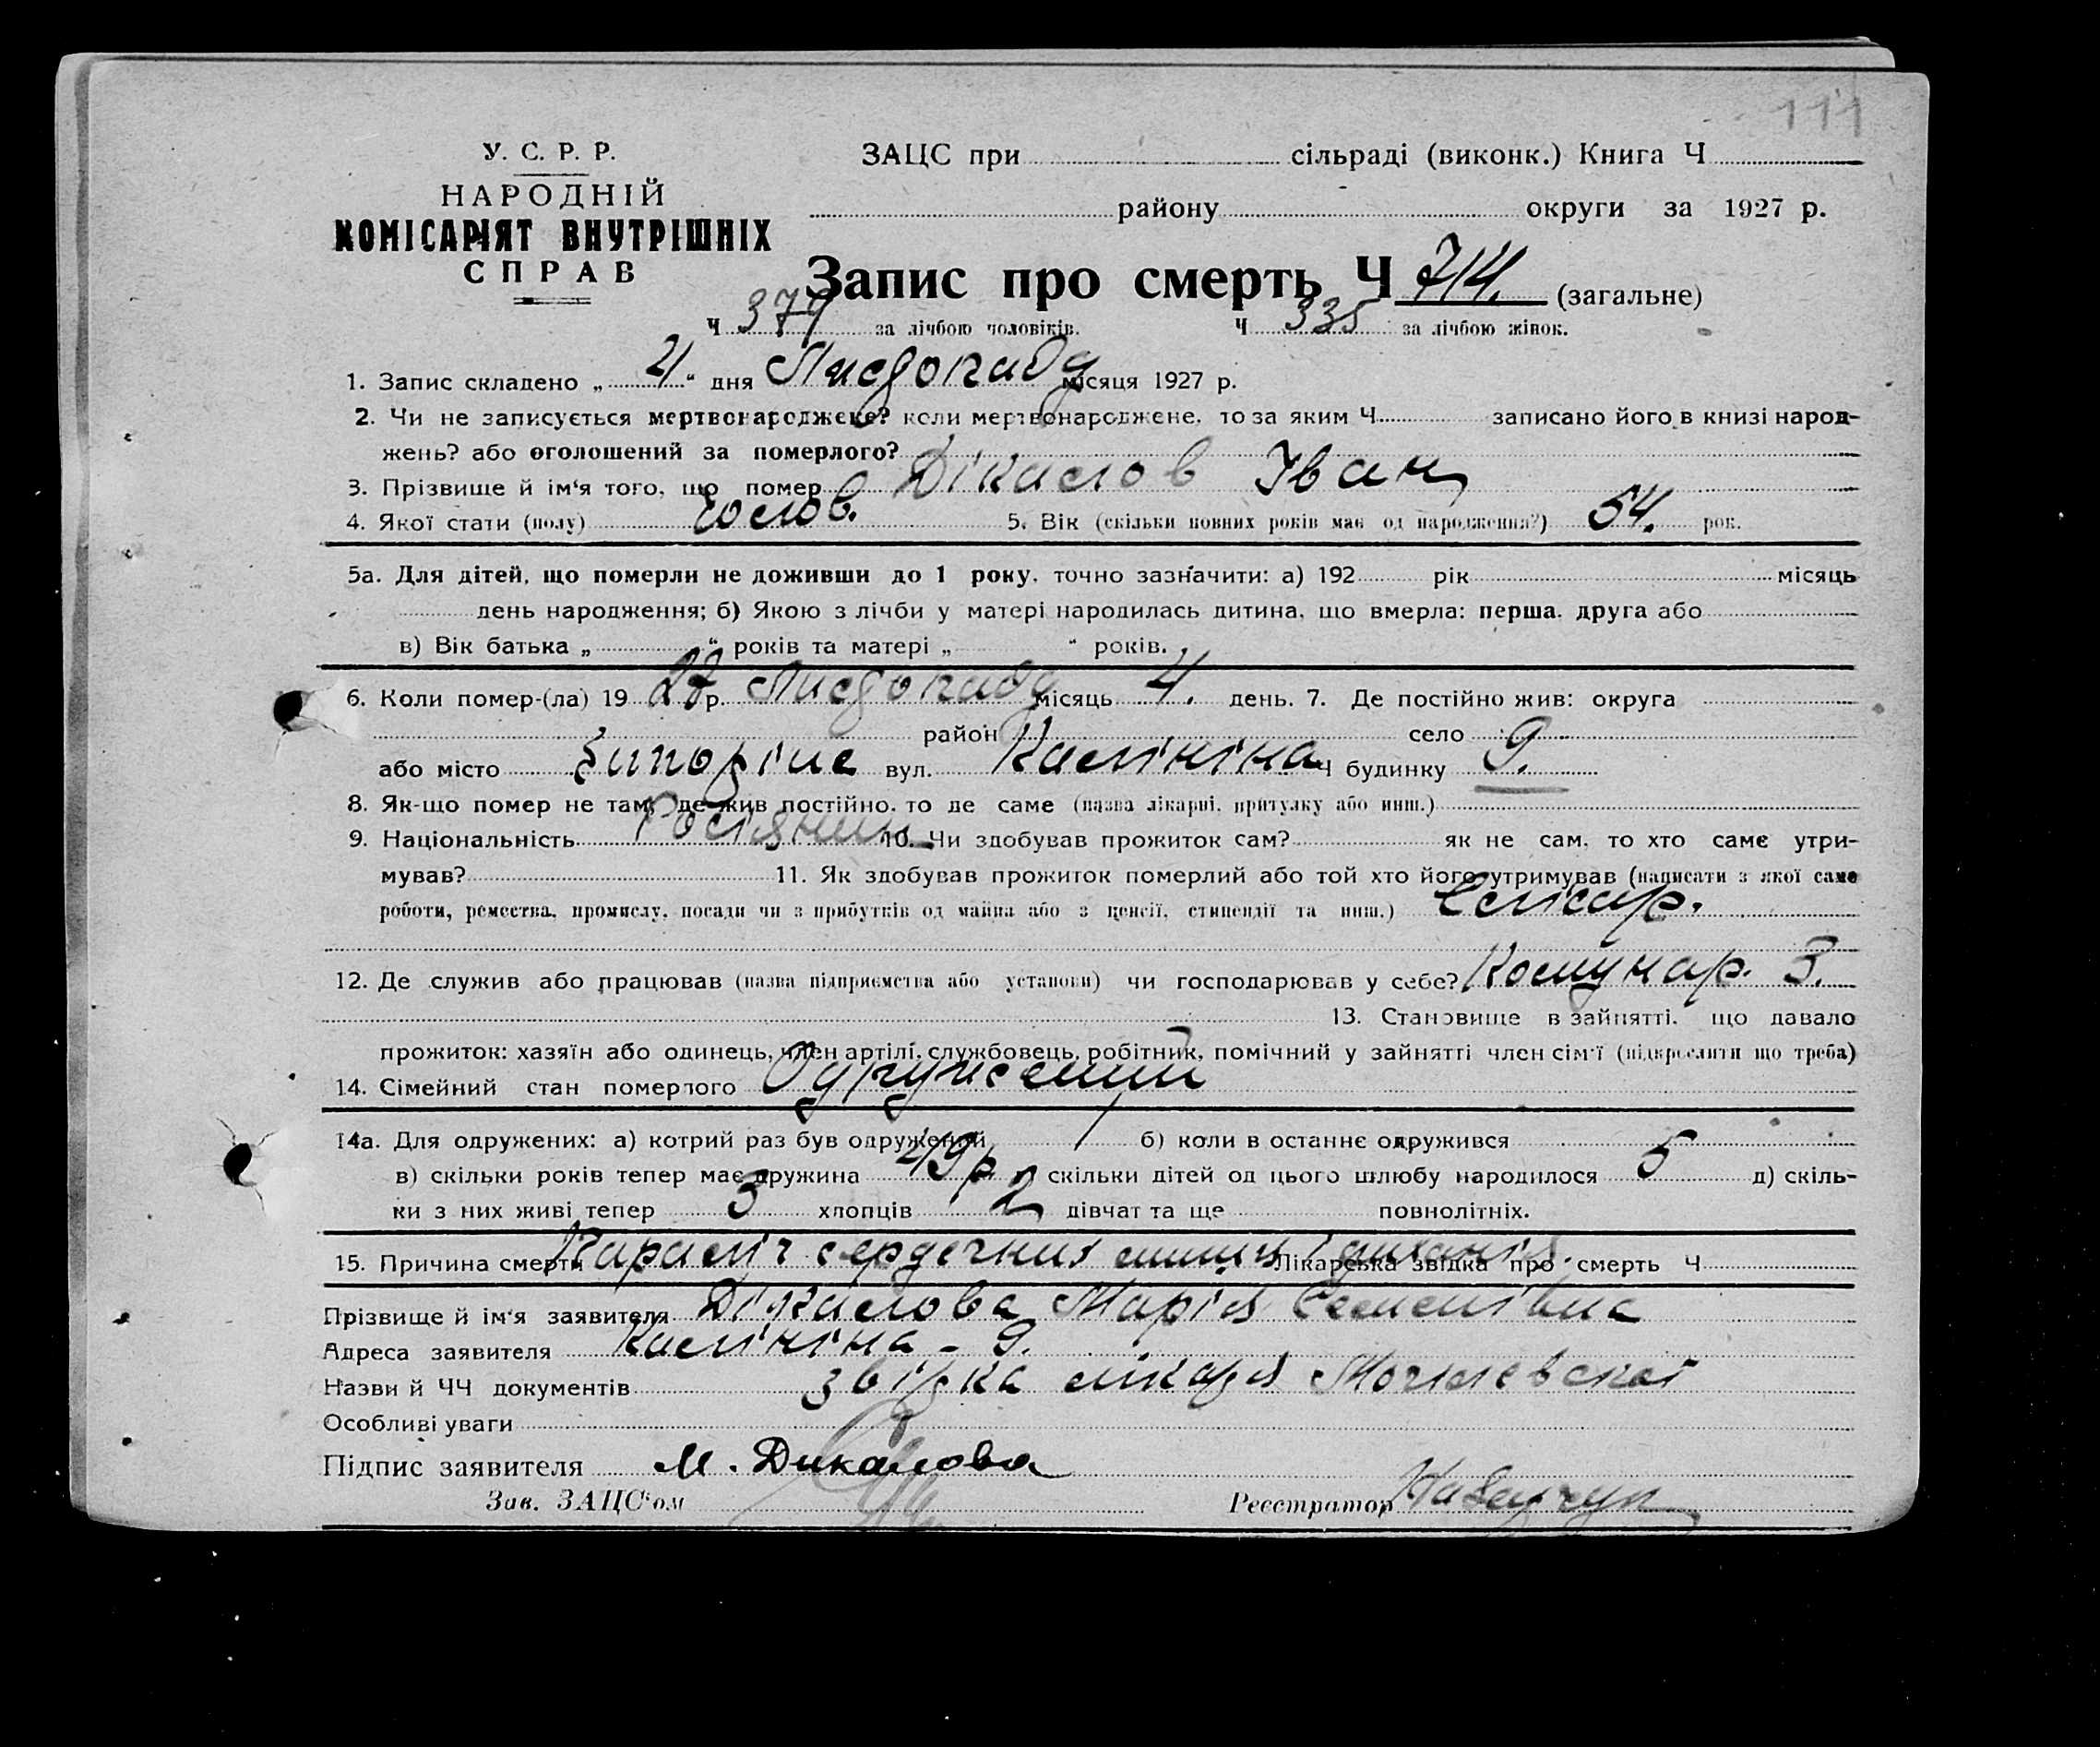 111
У. С. Р. Р.
НАРОДНІЙ
КОМІСАРІЯТ ВНУТРІШНІХ
СПРАВ
ЗАЦС при сільраді (виконк.) Книга Ч
району округи за 1927 р.
Запис про смерть Ч 714. (загальне)
Ч 379 за лічбою чоловіків. Ч 335 за лічбою жінок.
1. Запис складено „ 4 “ дня Листопада місяця 1927 р.
2. Чи не записується мертвонароджене? коли мертвонароджене, то за яким Ч записано його в книзі народ-
жень? або оголошений за померлого?
3. Прізвище й ім‘я того, що помер Дікалов Іван
4. Якої стати (полу) чолов. 5. Вік (скільки повних років має од народження?) 54. рок.
5а. Для дітей, що померли не доживши до 1 року, точно зазначити: а) 192 рік місяць
день народження; б) Якою з лічби у матері народилась дитина, що вмерла: перша, друга або
в) Вік батька „ “ років та матері „ “ років.
6. Коли помер-(ла) 19 27 р. Листопада місяць 4. день. 7. Де постійно жив: округа
район село
або місто Запоріжжя вул. Калініна Ч будинку 9.
8. Як-що помер не там, де жив постійно, то де саме (назва лікарні, притулку або инш.)
9. Національність Росіянин 10. Чи здобував прожиток сам? як не сам, то хто саме утри-
мував? 11. Як здобував прожиток померлий або той хто його утримував (написати з якої саме
роботи, ремества, промислу, посади чи з прибутків од майна або з пенсії, стипендії та инш.) Слюсар.
12. Де служив або працював (назва підприємства або установи) чи господарював у себе? Комунар. З.
13. Становище в зайнятті, що давало
прожиток: хазяїн або одинець, член артілі, службовець, робітник, помічний у зайнятті член сім‘ї (підкреслити що треба)
14. Сімейний стан померлого Одружений
14а. Для одружених: а) котрий раз був одружений 1 б) коли в останнє одружився
в) скільки років тепер має дружина 49 р. скільки дітей од цього шлюбу народилося 5 д) скіль-
ки з них живі тепер 3 хлопців 2 дівчат та ще повнолітніх.
15. Причина смерти Параліч сердечних Лікарська звідка про смерть Ч
Прізвище й ім‘я заявителя Дікалова Марія Семенівна
Адреса заявителя Калініна - 9.
Назви й ЧЧ документів звідка лікаря
Особливі уваги
Підпис заявителя М. Дикалова
Зав. ЗАЦС‘ом
Реєстратор